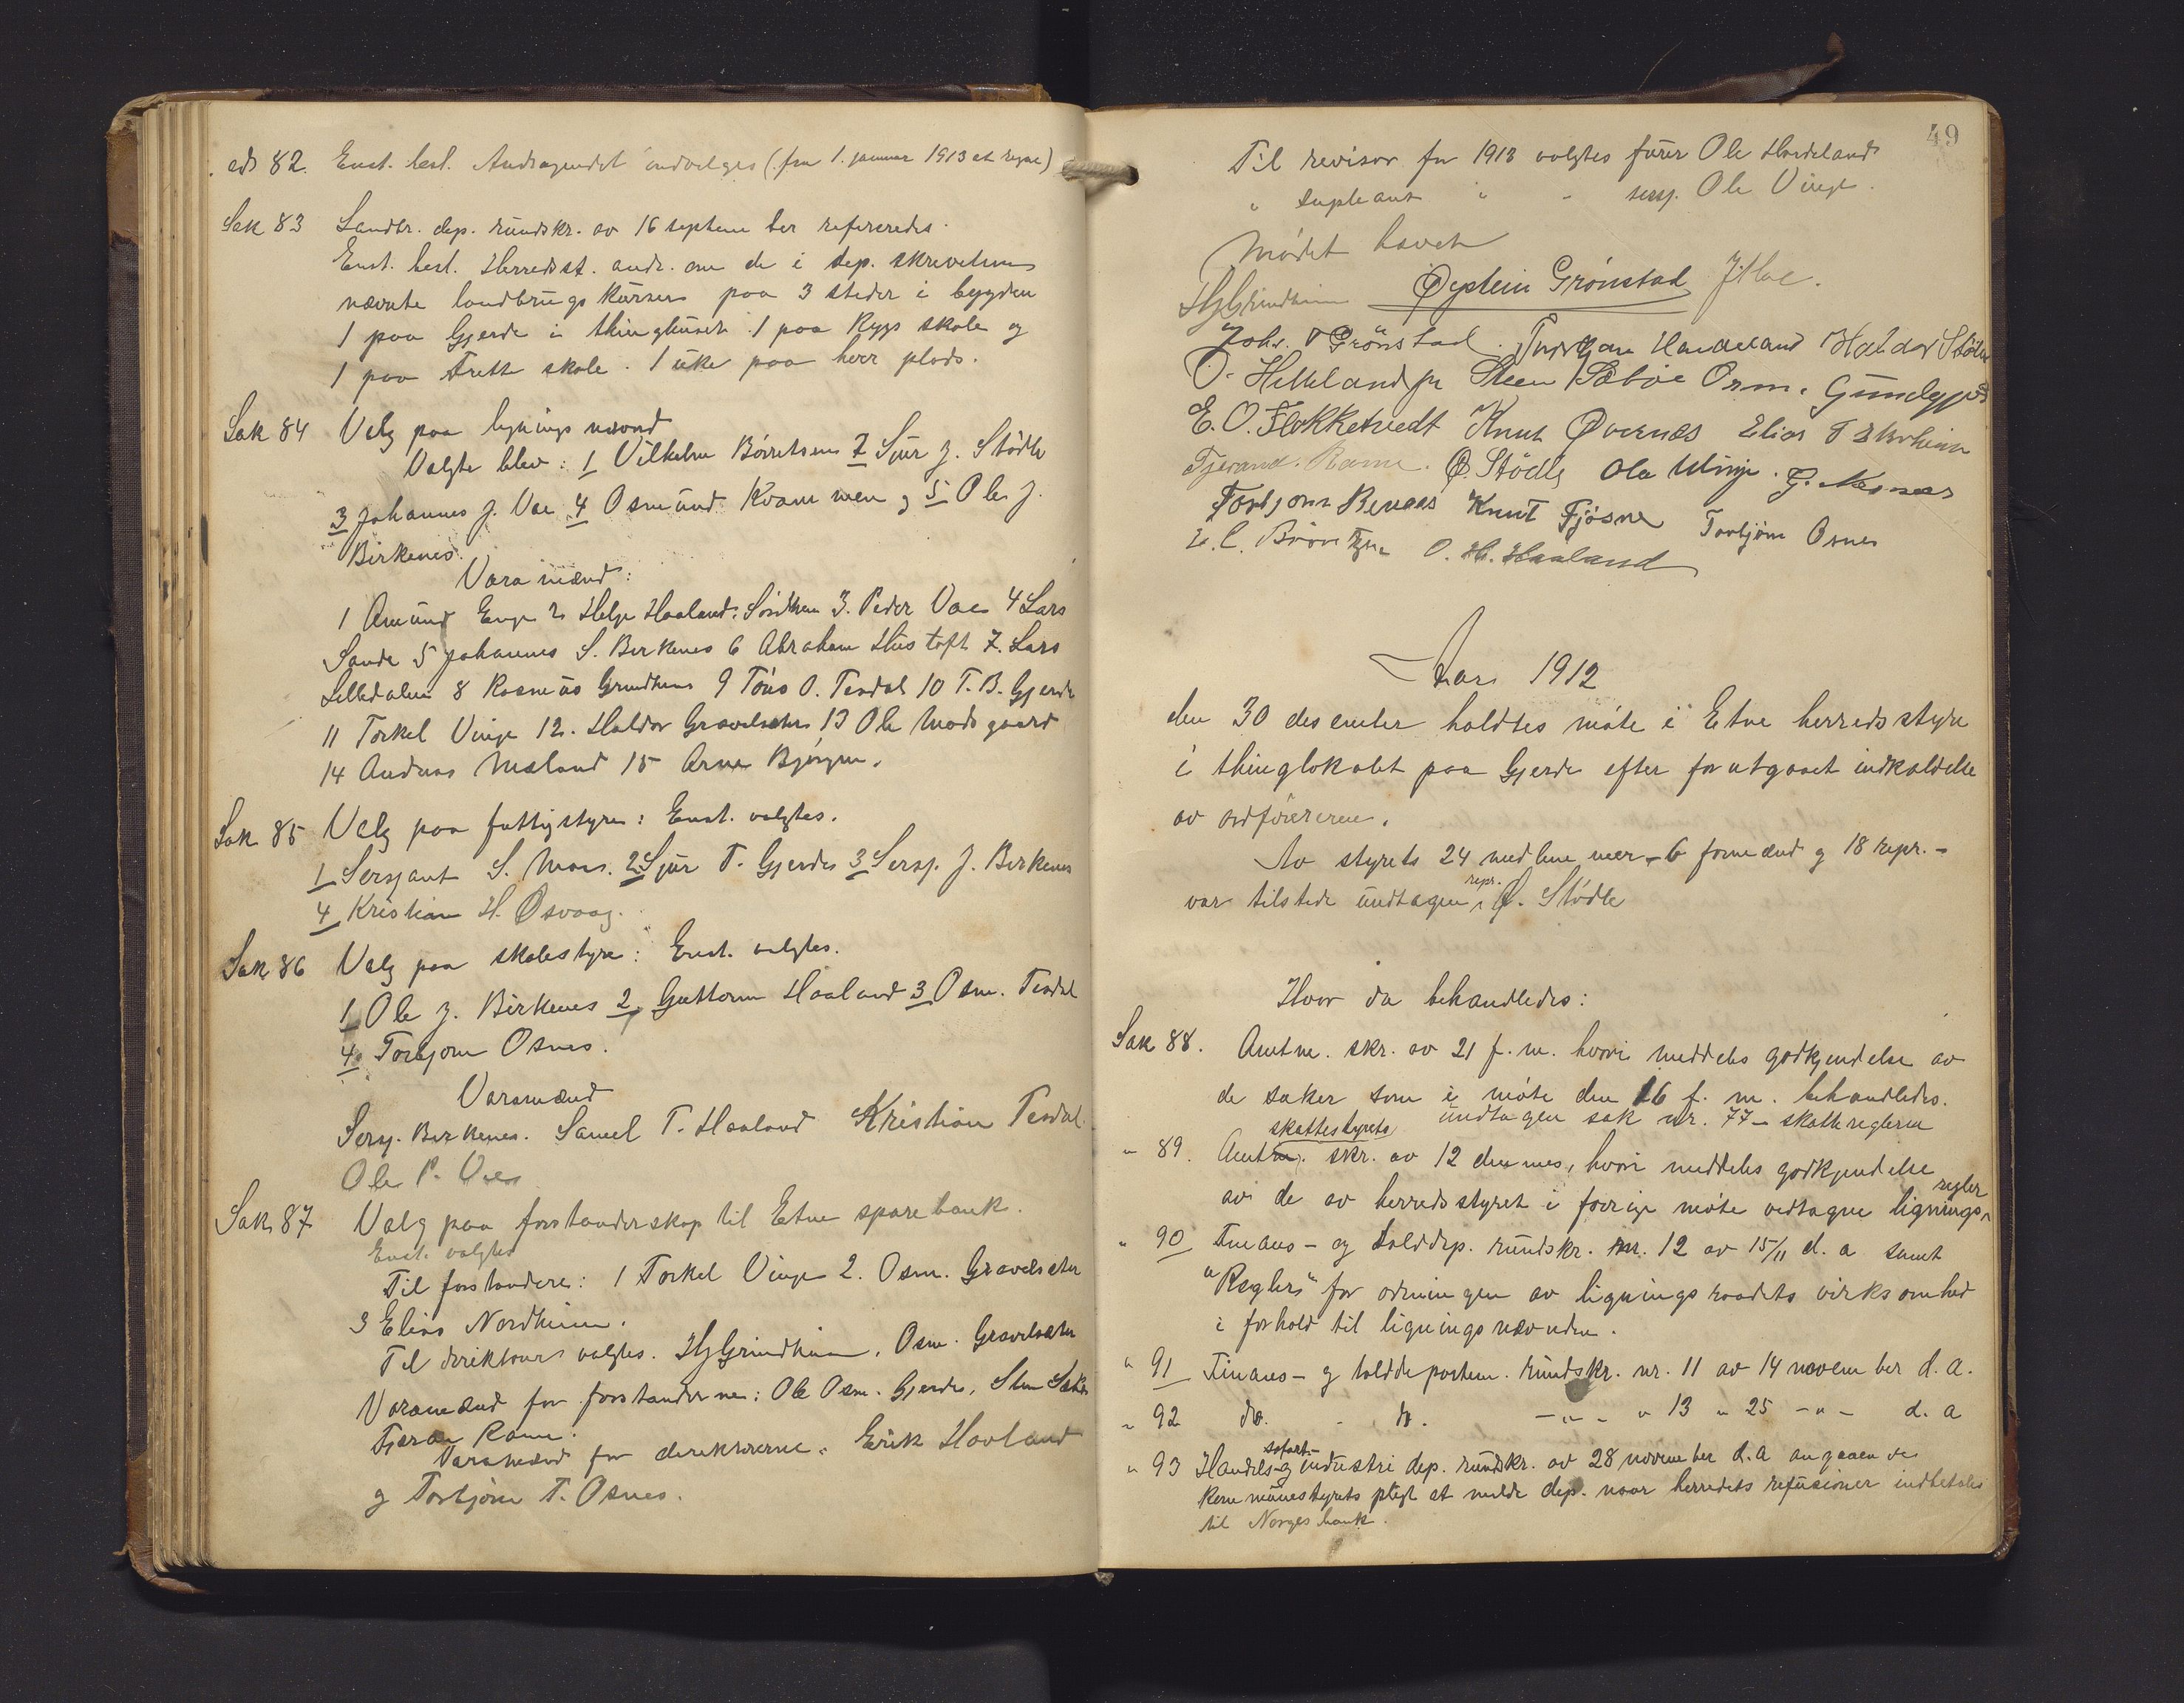 ads 82. Enst. besl. Andragendet indvelges (fra 1. januar 1913 at regne)
Sak 83 Landbr. dep. rundskr. av 16 septem ber refereredes.
Enst. besl. Herredsst. andr. om de i dep. skrivelse
nævnte landbrugskurser paa 3 steder i bygden
1 paa Gjerde i thinghuset 1 paa Rygs skole og
1 paa Frette skole. 1 uke paa hver plads.
Sak 84 Valg paa lignings nævnd
Valgte blev: 1 Vilhelm Børretsen 2 Sjur J. Stødle
3 Johannes J. Vae 4 Osmund Kvammen og 5 Ole J.
Birkenes.
Varamænd:
1 Amund Enge 2 Helge Haaland, Sørdheim 3. Peder Vae 4 Lars
Sande 5 Johannes S. Birkenes 6 Abraham Hustoft 7. Lars
Lilledalen 8 Rasmus Grindheim 9 Tøris O. Tesdal 10 T. B. Gjerde
11 Torkel Vinje 12. Haldor Gravelsæter 13 Ole Madsgaard
14 Andreas Mæland 15 Arne Bjørgen.
Sak 85 Valg paa fattigstyre: Enst. valgtes.
1 Sersjant S. Moe. 2 Sjur T. Gjerde 3 Sersj. J. Birkenes
4 Kristian H. Osvaag.
Sak 86 Valg paa skolestyre: Enst. valgtes.
1 Ole J. Birkenes 2 Guttorm Haaland 3 Osm. Tesdal
4 Torbjørn Osnes.
Varamænd
Sersj. Birkenes. Samel T. Haaland Kristian Tesdal.
Ole P. Vae
Sak 87 Valg paa forstanderskap til Etne sparebank.
Enst. valgtes
Til forstandere: 1 Torkel Vinje 2. Osm. Gravelsæter
3 Elias Nordheim.
Til direktører valgtes. H J Grindheim, Osm. Gravelsæter
Varamænd for forstanderne: Ole Osm. Gjerde, Sten Sæbø
Tjeran Rame.
Varamænd for direktørerne. Erik Haaland
og Torbjørn T. Osnes.
49
Til revisor for 1913 valgtes furer Ole Hardeland
" supleant " - sersj. Ole Vinje.
Mødet hævet
H J Grindheim Øystein Grønstad J Moe.
Johs. T Grönstad. Torkjon Handeland Haldor Stødle
O. Helleland jr Steen Sæbøe Orm. Grindegjerd
E. O. Flokketvedt Knut Øvernes Elias T
Tjerand. Rame. Ø. Stödle Ola Winje. G. Næsnes
Torbjørn Benes Knut Fjøsne Torbjørn Osnes
E. C. Børretzen O. H. Haaland
Aar 1912
den 30 desember holdtes møte i Etne herredsstyre
i thinglokalet paa Gjerde efter forutgaaet indkaldelse
av ordføreren.
Av styrets 24 medlemmer – 6 formænd og 18 repr. –
var tilstede undtagen repr. Ø. Stødle
Hvor da behandledes:
Sak 88. Amtm. skr. av 21 f. m. hvori meddeles godkjendelse av
de saker som i møte den 16 f. m. behandledes.
undtagen sak nr. 77 – skattereglerne
" 89. Amtm. skattestyrets skr. av 12 dennes, hvori meddeles godkjendelse
av de av herredsstyret i forrige møte vedtagne lignings regler
" 90 Finans – og tolddep. rundskr. nr. 12 av 15/11 d. a samt
"Regler" for ordningen av ligningsraadets virksomhed
i forhold til ligningsnævnden.
" 91 Finans – og tolddepartem. rundskr. nr. 11 av 14 november d. a.
" 92 do. - do. – " – " 13 " 25 – " – d. a
" 93 Handels- søfart- og industri dep. rundskr. av 28 november d. a angaaende
kommunestyrets pligt at melde dep. naar herredets refusioner indbetales
til Norges bank.